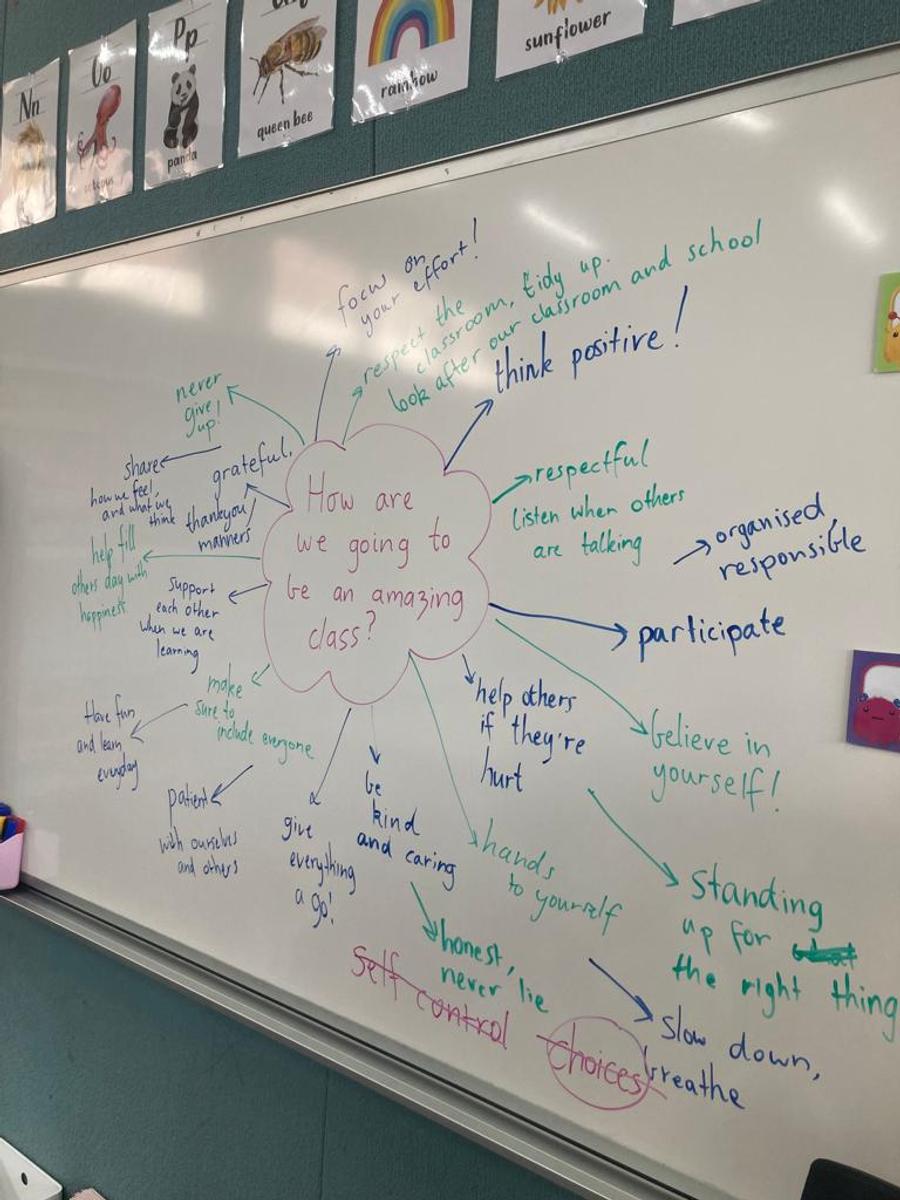 Nn
Oo
octopus
Pp
panda
queen bee
rainbow
sunflower
focus on
your effort!
respect the
classroom, tidy up.
look after our classroom and school
think positive!
never
give
up!
share
how we feel,
and what we
think
grateful,
thankyou
manners
How are
we going to
be an amazing
class?
respectful
listen when others
are talking
organised,
responsible
help fill
others day with
happiness
support
each other
when we are
learning
participate
make
sure to
include everyone
help others
if they're
hurt
believe in
yourself!
Have fun
and learn
everyday
patient
with ourselves
and others
give
everything
a go!
be
kind
and caring
hands
to yourself
standing
up for
the right thing
honest,
never lie
self control
choices
slow down,
breathe